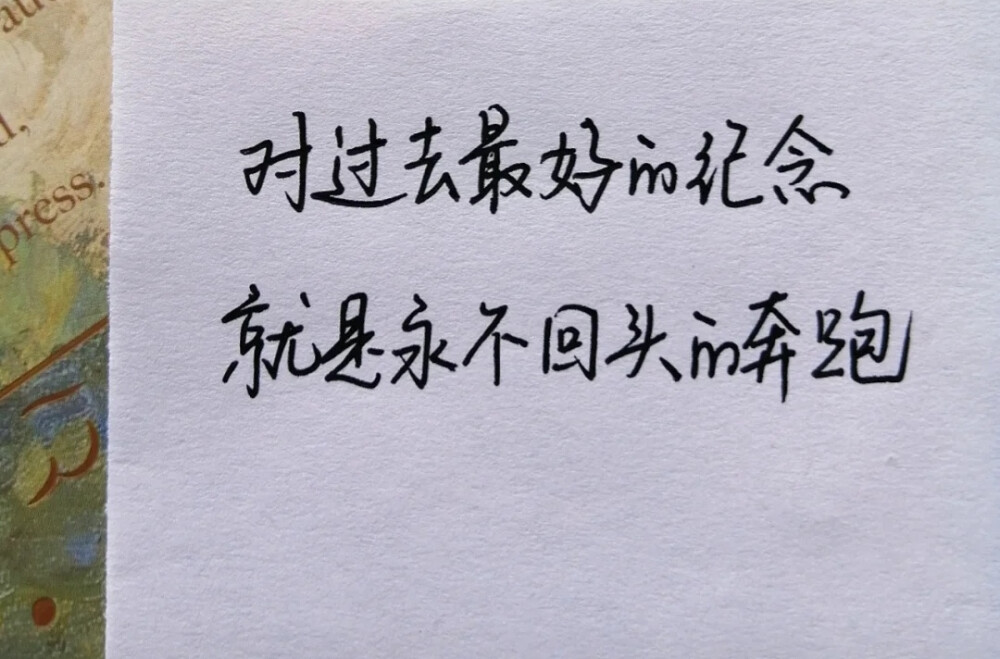 对过去最好的纪念
就是永不回头的奔跑
press.